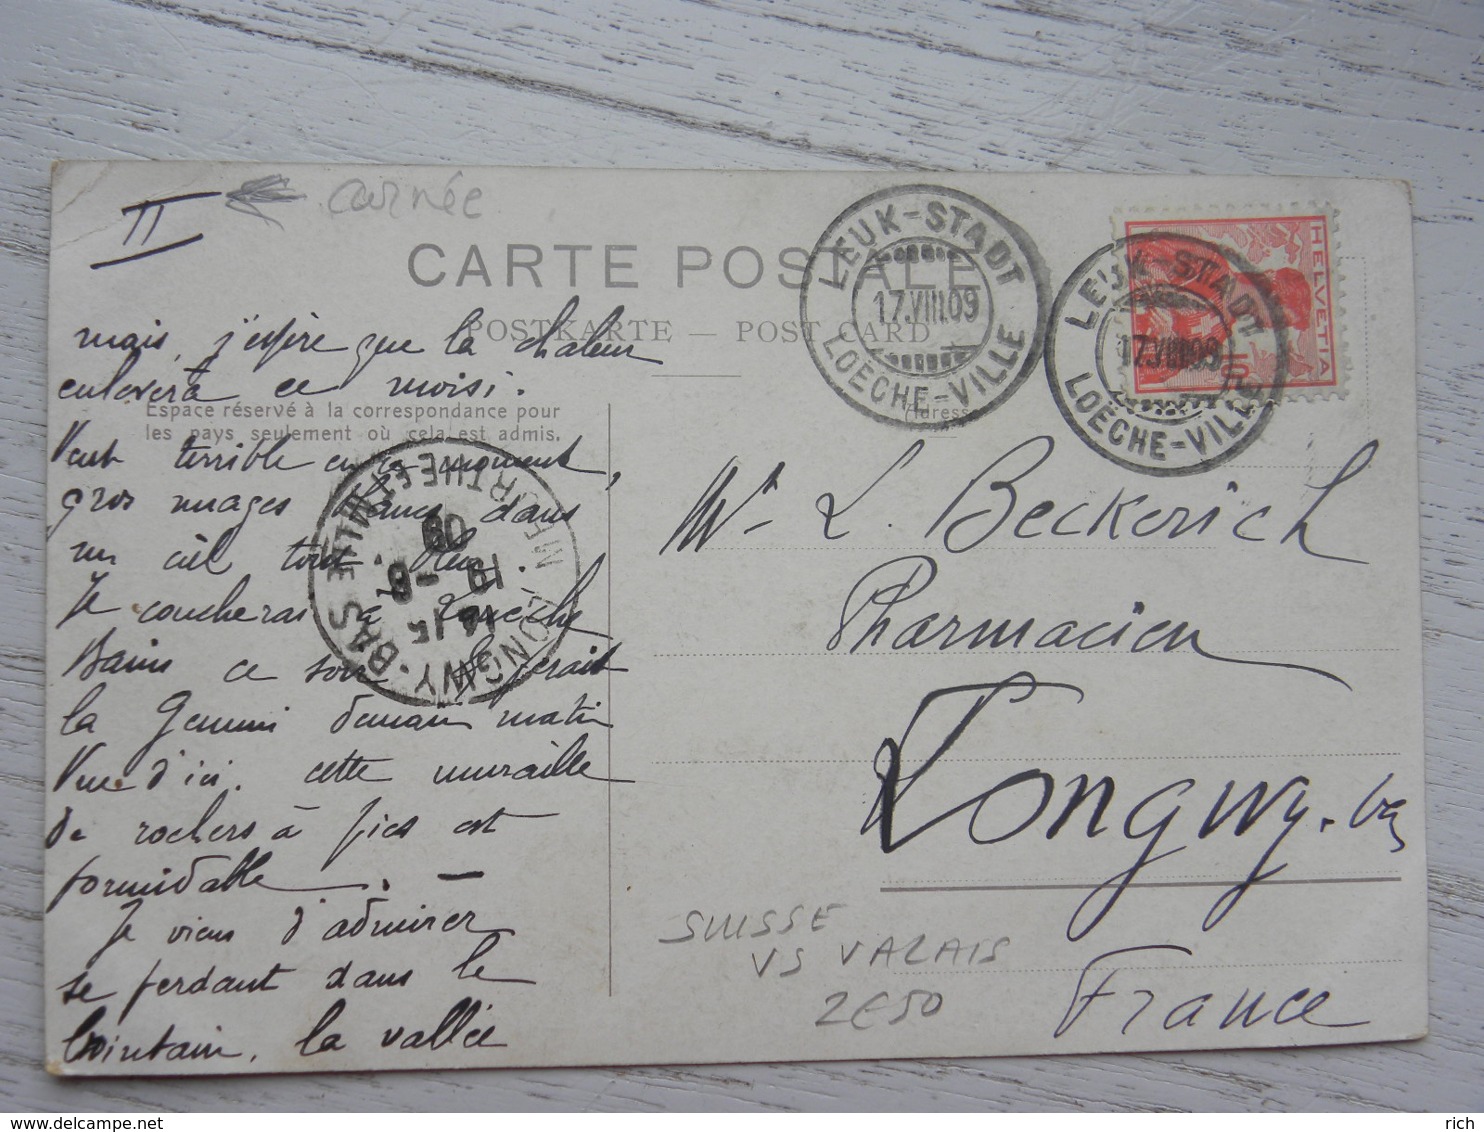 II
cornée
CARTE POSTALE
POSTKARTE — POST CARD
Espace réservé à la correspondance pour
les pays seulement où cela est admis.
Adresse
LEUK-STADT
17.VIII.09
LOÈCHE-VILLE
LEUK-STADT
17.VIII.09
LOÈCHE-VILLE
HELVETIA
10
mais, j'espère que la chaleur
enlèvera ce moisi.
Vent terrible en ce moment,
gros nuages blancs dans
un ciel tout bleu.
Je coucherai à Louèche
Bains ce soir & ferait
la Gemmi demain matin
Vue d'ici, cette muraille
de rochers à pics est
formidable. —
Je viens d'admirer
se perdant dans le
lointain, la vallée
LONGWY-BAS
MEURTHE ET MOSELLE
14 15
19 -8
09
Mr L. Beckerich
Pharmacien
Longwy-bas
France
SUISSE
VS VALAIS
2€50
rich